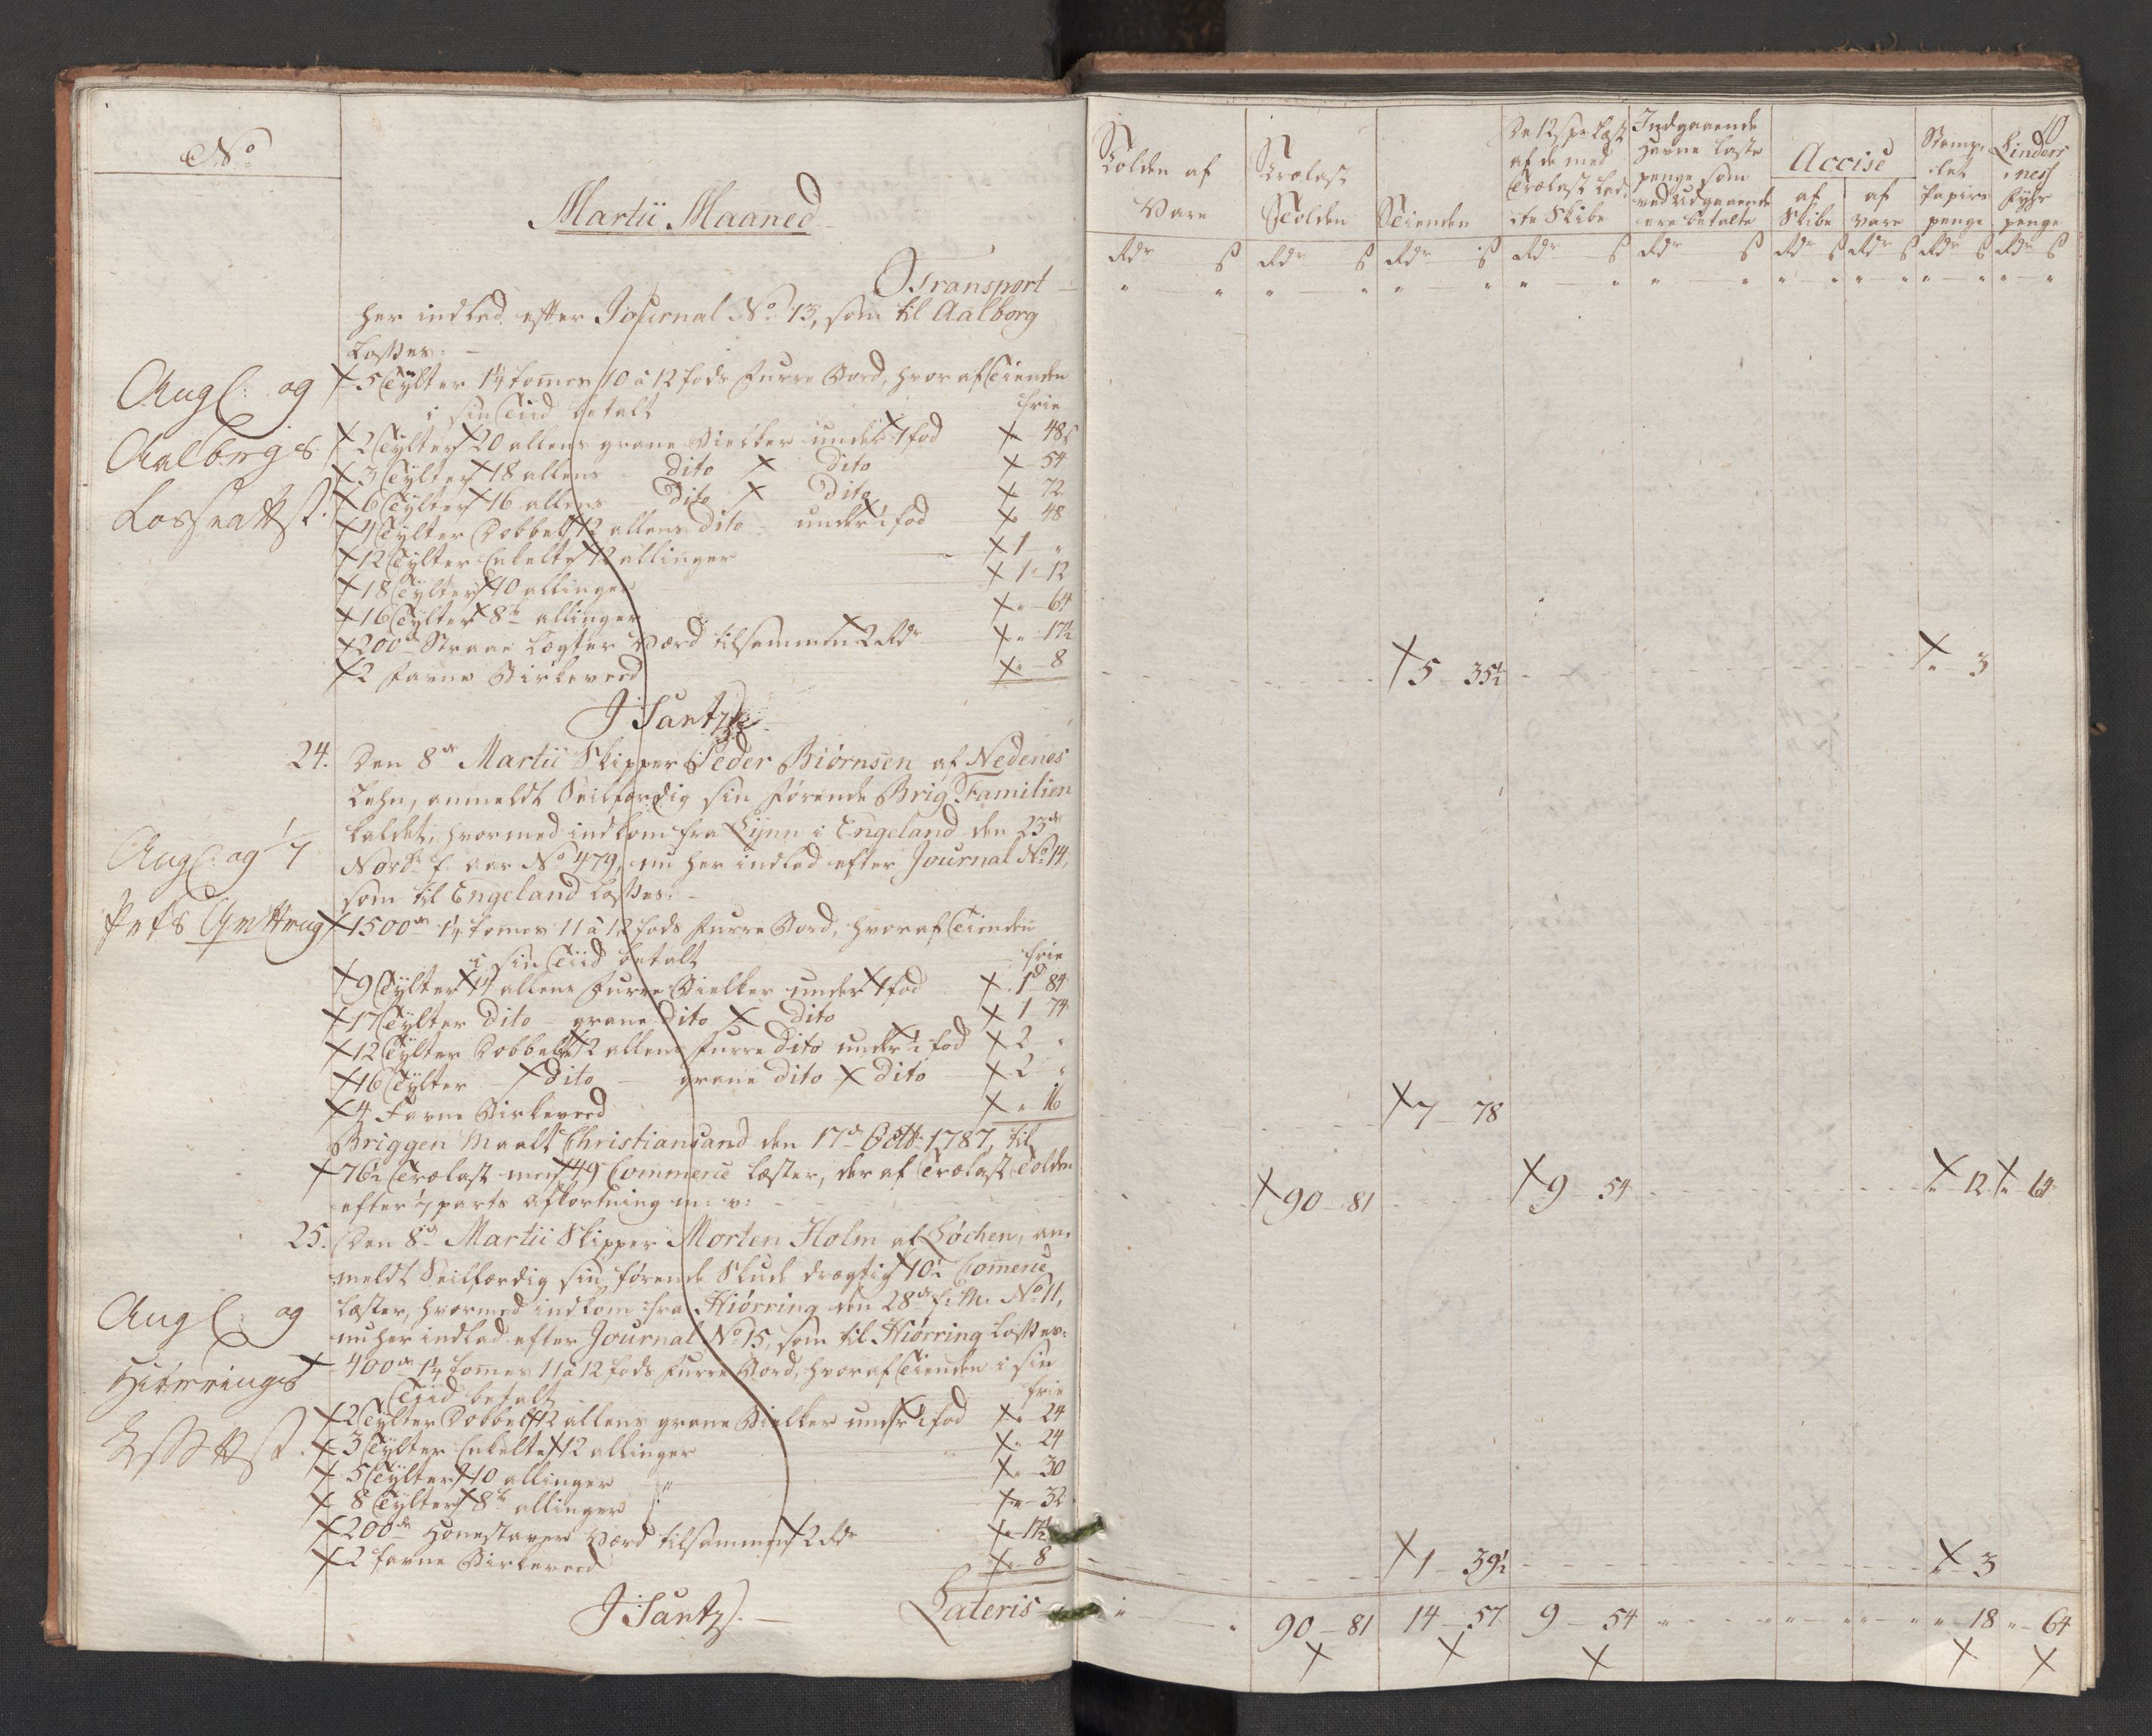 No
Martii Maaned
Transport
her indlad efter Journal No 13, som til Aalborg
losses:
Angl: og
Aalborgs
5 Tylter 1¼ tomes 10 à 12 fods furre Bord, hvoraf Tienden
i sin Tiid betalt
frie
2 Tylter 20 allens grane Bielker under 1 fod 48 s
3 Tylter 18 allens dito dito 54
6 Tylter 16 allens dito dito 72
Tylter Dobbelt 12 allens dito under 1 fod 48
12 Tylter Enkelte 12 allinger 1 "
18 Tylter 10 allinger 1 12
16 Tylter 8te allinger " 64
200de Straae Lægter værd tilsammen 2 Rdr " 17½
2 favne Birkeveed " 8
24. Den 8de Martii Skipper Peder Biørnsen af Nedenes
Lehn, anmeldt Seilfærdig sin førende Brig Familien
kaldet, hvormed indkom fra Lynn i Engeland den 23de
Angl: og
Novbr f. aar No 479, nu her indlad efter Journal No 14,
som til Engeland losses:
1500de 1¼ tomes 11 à 12 fods furre Bord, hvoraf Tienden
i sin Tiid betalt
frie
9 Tylter 14 allens furre Bielker under 1 fod 1 84
17 Tylter dito grane dito dito 1 74
12 Tylter Dobbelt 12 allens furre dito under 1 fod 2 "
16 Tylter dito grane dito dito 2 "
4 Favne Birkeveed " 16
Briggen maalt Christiansand den 17de Octbr 1787, til
76½ Trælast men 49 Commerce læster, der af Trælast Tolden
efter parts afkortning m: v:
25. Den 8de Martii Skipper Morten Holm af Løchen, an-
meldt Seilfærdig sin førende Skude drægtig 10½ Commerce
Angl: og
læster, hvormed indkom fra Hiørring den 28de f: M: No 11,
nu her indlad efter Journal No 15, som til Hiørring losses:
Hiørrings
400de 1¼ tomes 11 à 12 fods furre Bord, hvoraf Tienden i sin
Tiid betalt
frie
2 Tylter Dobbelt 12 allens grane Bielker under 1 fod " 24
3 Tylter Enkelte 12 allinger " 24
5 Tylter 10 allinger " 30
8 Tylter 8te allinger " 32
200de Honestaver værd tilsammen 2 Rdr " 17½
2 favne Birkeveed " 8
Lateris
Tolden af
Vare
Trælast
Tolden
Tienden
De 12 s pr Læst
af de med
Trælast lad-
te Skibe
Indgaaende
Havne laste
penge som
ved udgaaende
ere betalte
Accise
af
Skibe
af
Vare
Stemp-
let
Papirs
penge
Linders
nes
Fyhr
penge
Rdr s Rdr s Rdr s Rdr s Rdr s Rdr s Rdr s Rdr s Rdr s
5 35½ " 3
7 78
90 81 9 54 " 12 " 64
1 39½ " 3
" " 90 81 14 57 9 54 " " " " " " " 18 " 64